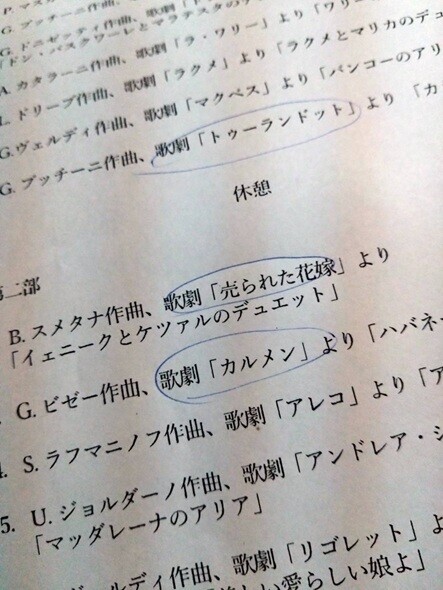 P. マス
G. プッチーニ作曲、歌劇「
G. ドニゼッティ作曲、歌劇「
「ドン・パスクワーレとマラテスタの
A. カタラーニ作曲、歌劇「ラ・ワリー」より「ワリー
L. ドリーブ作曲、歌劇「ラクメ」より「ラクメとマリカのデュ
G.ヴェルディ作曲、歌劇「マクベス」より「バンコーのアリ
G. プッチーニ作曲、歌劇「トゥーランドット」より 「カ
休憩
第二部
B. スメタナ作曲、歌劇「売られた花嫁」より
「イェニークとケツァルのデュエット」
G. ビゼー作曲、歌劇「カルメン」より「ハバネ
4. S. ラフマニノフ作曲、歌劇「アレコ」より「ア
5. U. ジョルダーノ作曲、歌劇「アンドレア・シ
「マッダレーナのアリア」
ヴェルディ作曲、歌劇「リゴレット」よ
しい愛らしい娘よ」